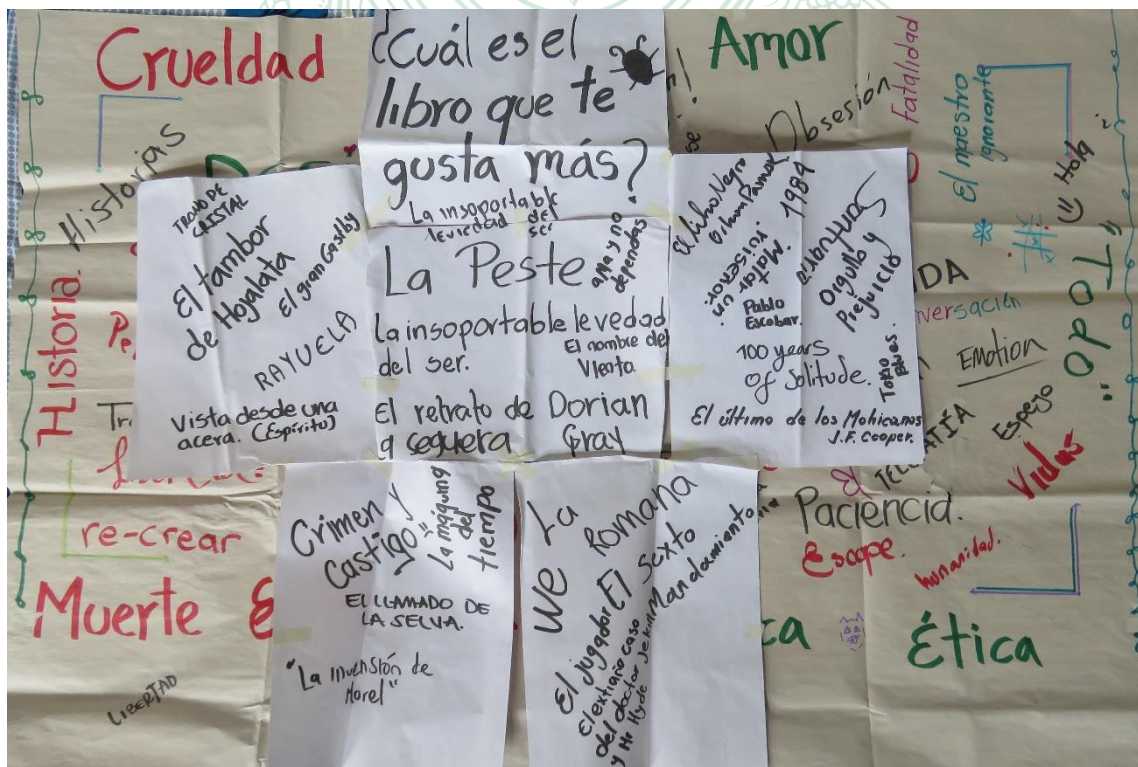 Crueldad
¿Cuál es el
libro que te
gusta más?
Amor
Obsesión
Fatalidad
El maestro
ignorante
Hola
"Todo"
Historias
Historia
TRONO DE
CRISTAL
El tambor
de Hojalata
El gran Gastby
RAYUELA
Vista desde una
acera. (Espíritu)
La insoportable
levedad del
ser
La Peste
ama y no
dependas
La insoportable levedad
del ser.
El nombre del
Viento
El retrato de Dorian
Gray
a ceguera
El libro Negro
Orhan Pamuk
Matar un
ruiseñor.
1984
Pablo
Escobar.
Orgullo y
Prejuicio
100 years
Of Solitude.
El último de los Mohicanos
J.F. Cooper.
Emotion
Espejo
Vidas
Paciencia.
Escape.
humanidad.
Ética
re-crear
Muerte
LIBERTAD
Crimen y
Castigo"
La máquina
del
tiempo
EL LLAMADO DE
LA SELVA.
"La invensión de
Morel"
We
La
Romana
El Sexto
Mandamiento
El jugador
El extraño caso
del doctor Jekill
y Mr Hyde